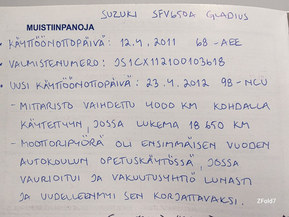 SUZUKI SFV650A GLADIUS
MUISTIINPANOJA
• KÄYTTÖÖNOTTOPÄIVÄ: 12.4.2011 68-AEE
• VALMISTENUMERO: JS1CX112100103618
• UUSI KÄYTTÖÖNOTTOPÄIVÄ: 23.4.2012 98-NCU
- MITTARISTO VAIHDETTU 4000 KM KOHDALLA
KÄYTETTYYN, JOSSA LUKEMA 18 650 KM
- MOOTTORIPYÖRÄ OLI ENSIMMÄISEN VUODEN
AUTOKOULUN OPETUSKÄYTÖSSÄ, JOSSA
VAURIOITUI JA VAKUUTUSYHTIÖ LUNASTI
JA UUDELLEENMYI SEN KORJATTAVAKSI.
ZFold7